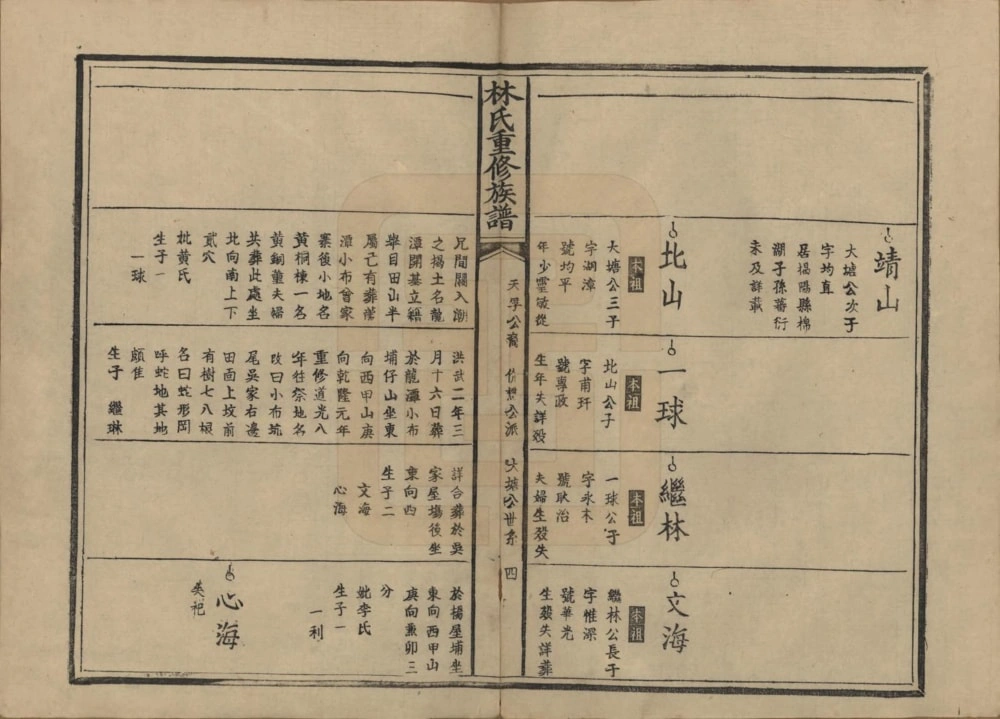 林氏重修族譜
天孚公裔
大墟公世系
四
靖山
大墟公次子
字均直
居揭陽縣棉
湖子孫蕃衍
未及詳載
北山
本祖
大墟公三子
字湖漳
號均平
年少靈敏從
兄間關入潮
之揭土名龍
潭開基立籍
畢目田山半
屬己有葬龍
潭小布曾家
寨後小地名
黃桐棟一名
黃銅董夫婦
共葬此處坐
北向南上下
貳穴
妣黃氏
生子一
一球
一球
本祖
北山公子
字甫玕
號專政
生年失詳歿
洪武二年三
月十六日葬
於龍潭小布
埔仔山坐東
向西甲山庚
向乾隆元年
重修道光八
年牲祭地名
改曰小布坑
尾吳家右邊
田面上坟前
有樹七八根
名曰蛇形岡
呼蛇地其地
頗佳
生子 繼琳
繼林
本祖
一球公子
字永木
號耿治
夫婦生歿失
詳合葬於吳
家屋場後坐
東向西
生子二
文海
心海
文海
本祖
繼林公長子
字惟深
號華光
生歿失詳葬
於楊屋埔坐
東向西甲山
庚向兼卯三
分
妣李氏
生子一
一利
心海
英祀